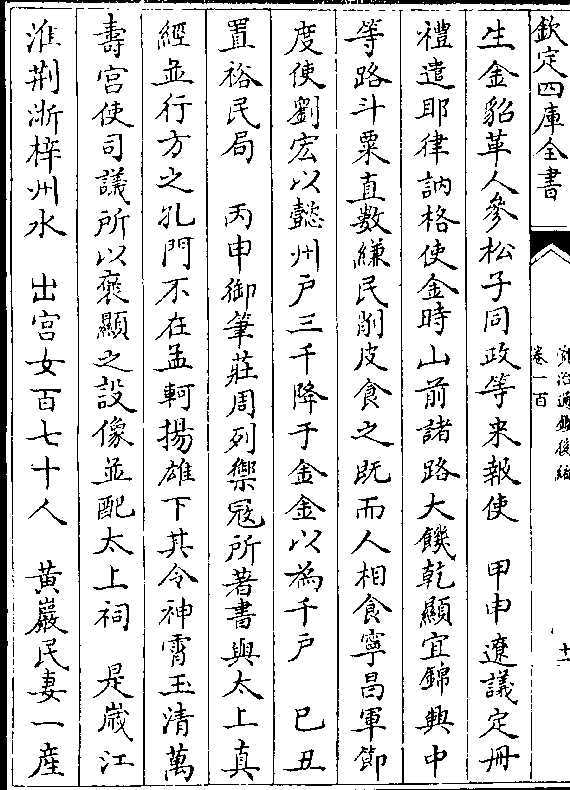 欽定四庫全書
資治通鑑後編
卷一百
十一
生金貂革人參松子同政等来報使　甲申遼議定冊
禮遣耶律訥格使金時山前諸路大饑乾顯宜錦興中
等路斗粟直數縑民削皮食之既而人相食寧昌軍節
度使劉宏以懿州戶三千降于金金以為千戶　己丑
置裕民局　丙申御筆莊周列禦寇所著書與太上真
經並行方之孔門不在孟軻揚雄下其令神霄玉清萬
壽宮使司議所以褒顯之設像並配太上祠　是嵗江
淮荆浙梓州水　出宮女百七十人　黄巖民妻一産